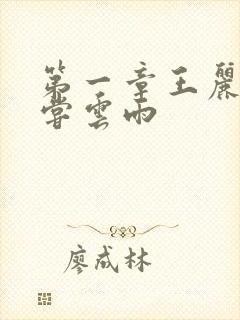 第一章王麗
嘗雲雨
廖成林